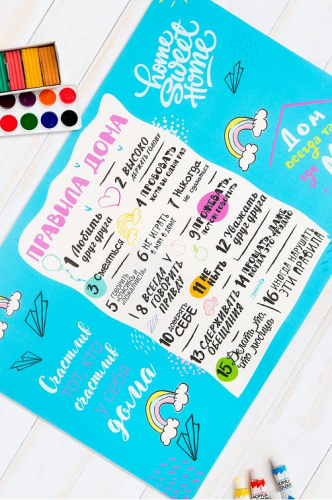 home
Sweet
Home
Дом
всегда там
где
ПРАВИЛА ДОМА
1 Любить
друг друга
2 Высоко
держать голову
3 Смеяться
4 Пробовать
хотя бы один раз
5 Говорить
«спасибо» и
«пожалуйста»
6 Не играть
7 Никогда
не сдаваться
8 Всегда
говорить
правду
9 Громевать,
10 Доверять
себе
11 Не
ныть
12 Уважать
друг друга
13 Сдерживать
обещания
14
15 Делать то,
что любишь
16 Иногда нарушать
эти правила
Счастлив
тот, кто
счастлив
у себя
дома